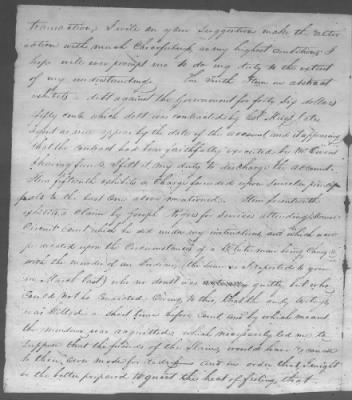 transaction, I will on your Suggestion make the alter
ation with much Chearfulness, as my highest ambition, I
hope will ever prompt me to do my duty to the extent
of my understanding. The ninth Item in abstract
exhibits a debt against the Government for forty six dollars
fifty cents which debt was contracted by Col.
Agent as will appear by the date of the account and supposing
that the contract had been faithfully executed by Mr.
having funds I felt it my duty to discharge the account.
Item fifteenth exhibits a Charge founded upon similar
facts to the last one above mentioned. Item seventeenth
exhibits a claim by Joseph for services attending
Circuit Court which he did under my instructions and which were
predicated upon the Circumstances of a White man being Charg'd
with the murder of an Indian, (the same as I reported to you
in March last) who no doubt was guilty, but who
Could not be Convicted Owing to this, that the only witness
was killed a short time before Court and by which means
the murderer was acquitted, which necessarily led me to
suppose that the friends of the Slain, would have recourse
to their own mode for redress and in order that I might
be the better prepared to quiet this heat of feeling, that